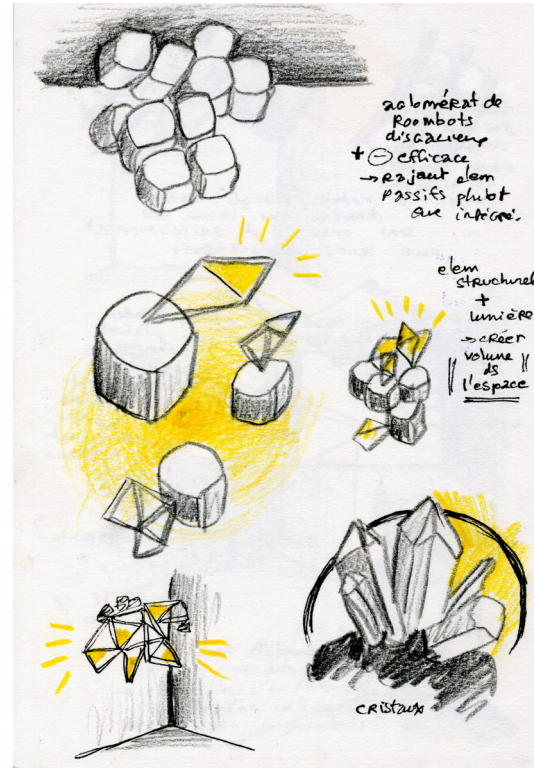 agloomérat de
Roombots
disgracieux
+ ⊖ efficace
→ Rajout elem
passifs plutôt
que intégré.
elem
structurel
+
lumière
→ créer
volume
ds
l'espace
cristaux